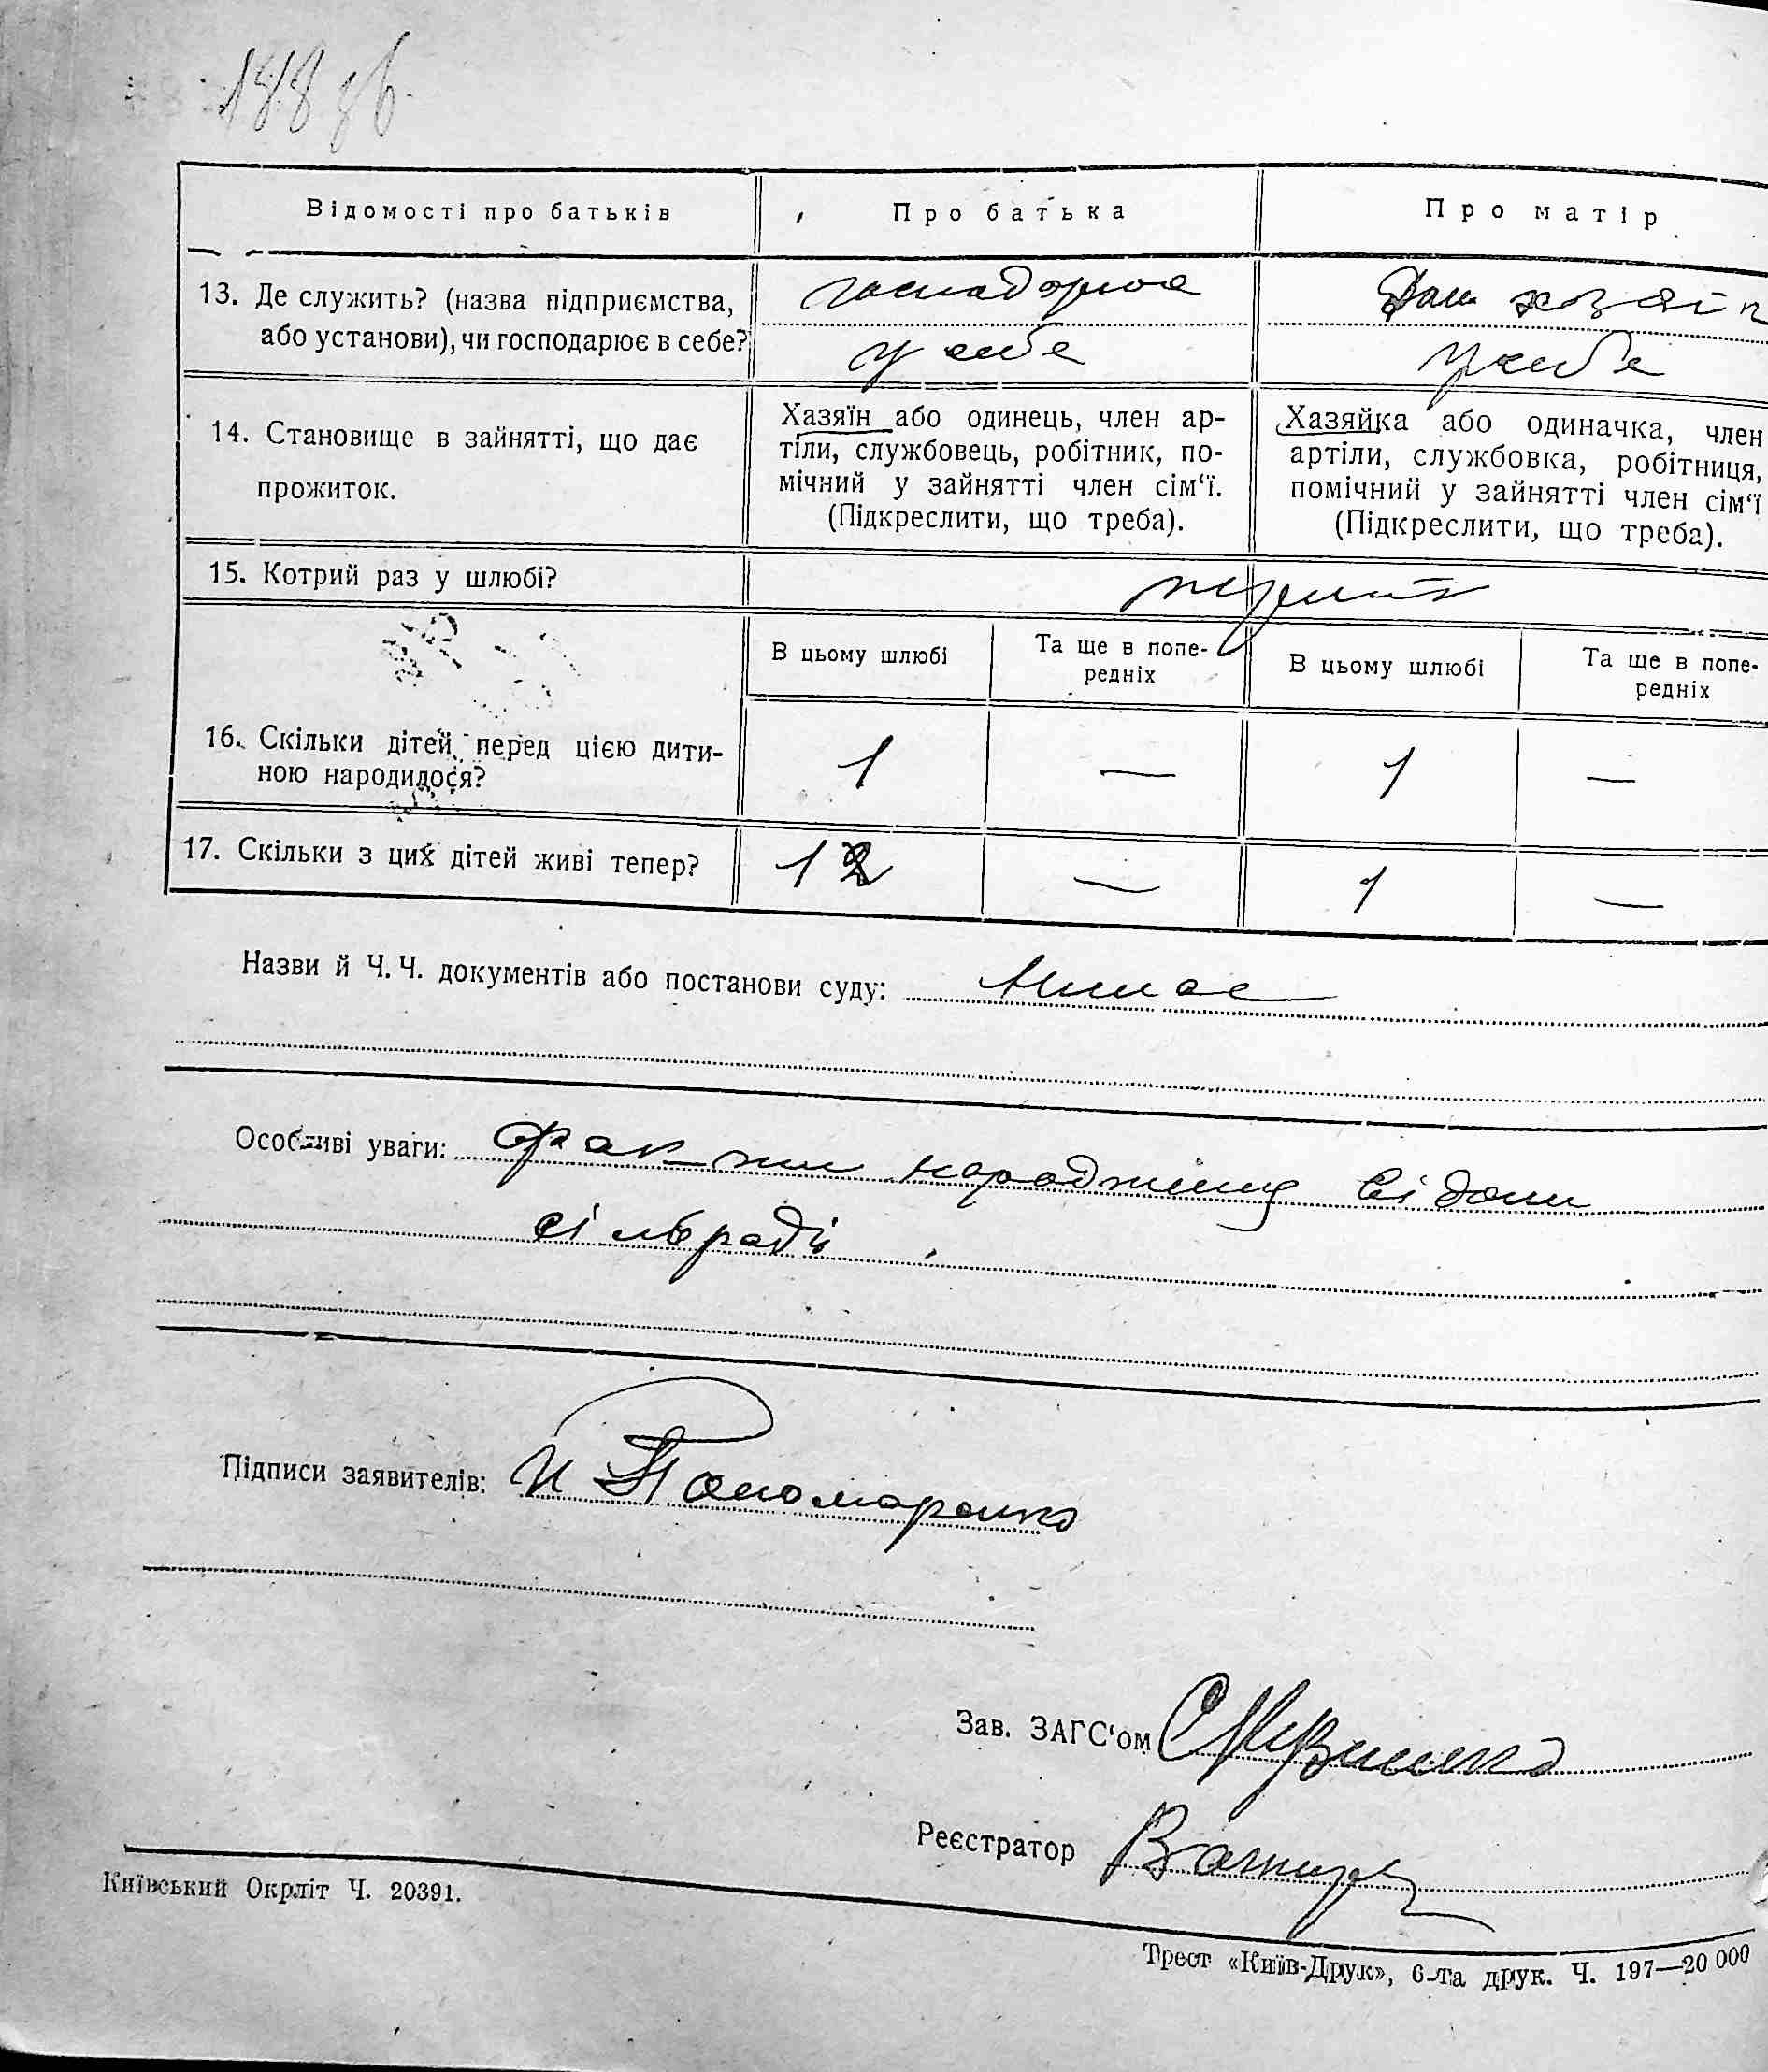 188 зв
Відомості про батьків
Про батька
Про матір
13. Де служить? (назва підприємства,
або установи), чи господарює в себе?
господарює
у себе
Дом хозяїн
у себе
14. Становище в зайнятті, що дає
прожиток.
Хазяїн або одинець, член ар-
тіли, службовець, робітник, по-
мічний у зайнятті член сім‘ї.
(Підкреслити, що треба).
Хазяйка або одиначка, член
артіли, службовка, робітниця,
помічний у зайнятті член сім‘ї
(Підкреслити, що треба).
15. Котрий раз у шлюбі?
В цьому шлюбі
Та ще в попе-
редніх
В цьому шлюбі
Та ще в попе-
редніх
16. Скільки дітей перед цією дити-
ною народилося?
1
—
1
—
17. Скільки з цих дітей живі тепер?
12
—
1
—
Назви й Ч. Ч. документів або постанови суду: Немає
Особливі уваги: народження відом
сільраді
Підписи заявителів: И Пономаренко
Зав. ЗАГС‘ом
Реєстратор
Київський Окрліт Ч. 20391.
Трест «Київ-Друк», 6-та друк. Ч. 197—20 000